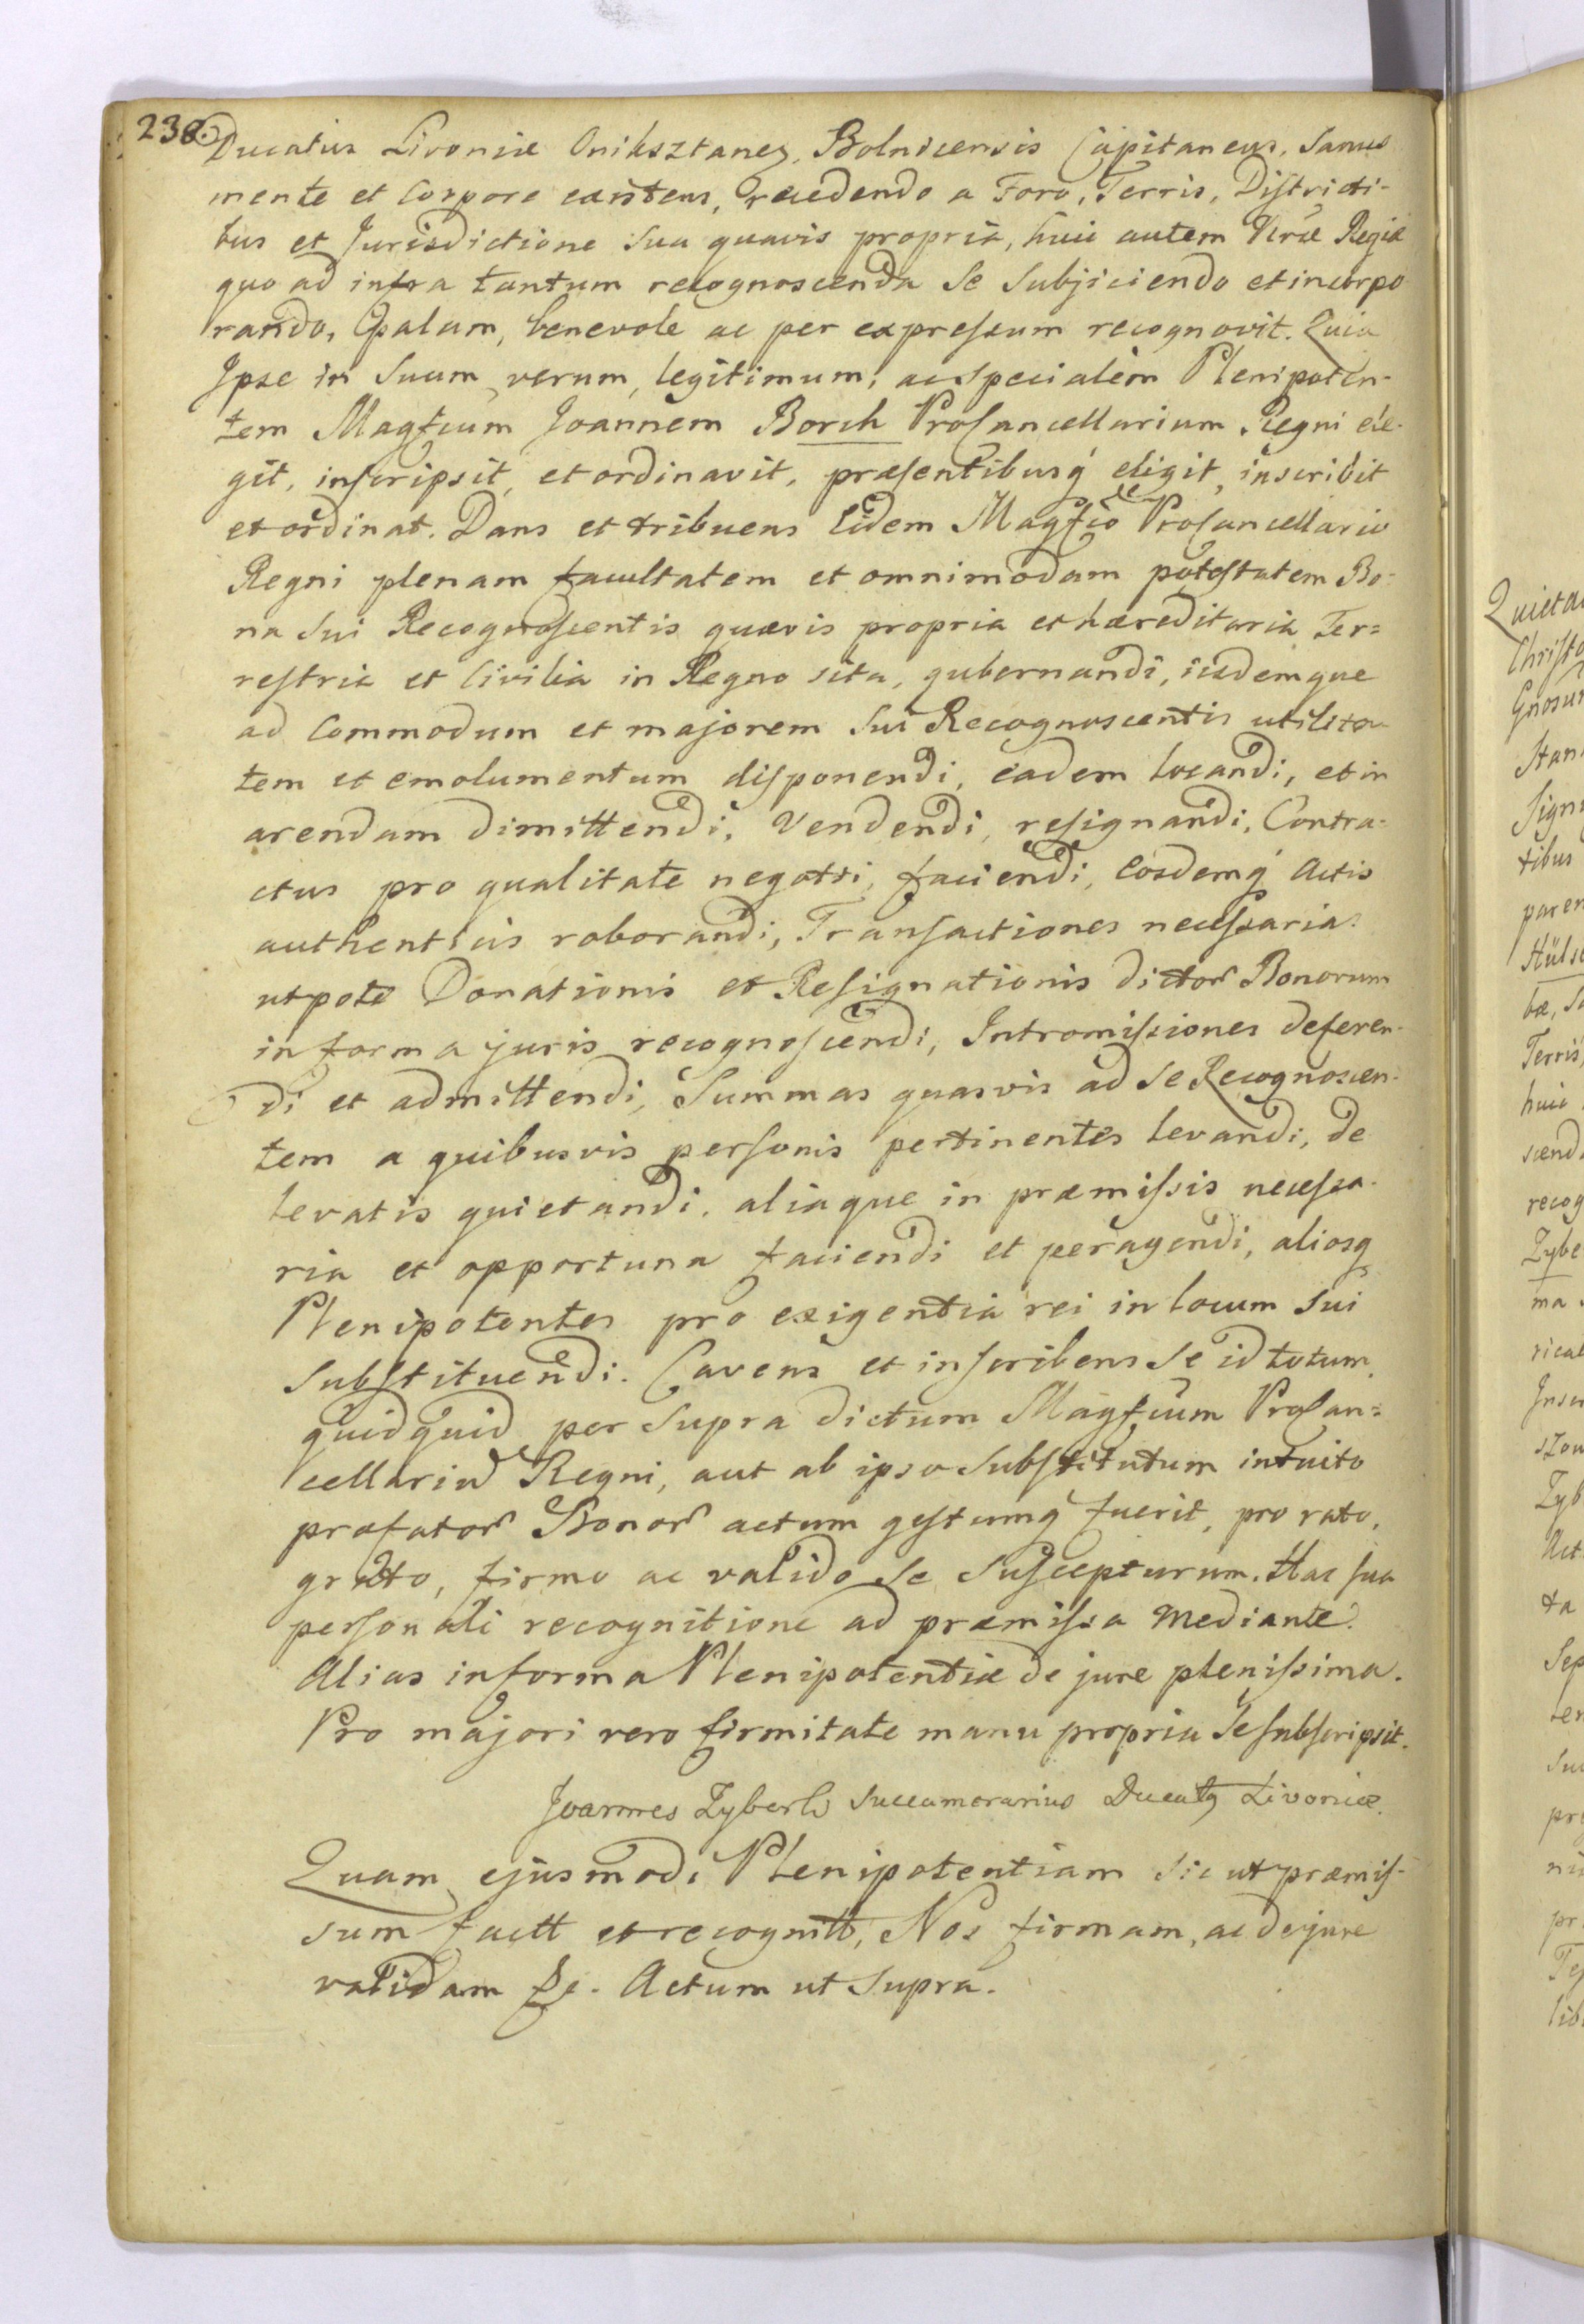 238.
Ducatus Livoniæ Oniksztaney, Bolnicensis Capitaneus, Sanus
mente et Corpore existens, recedendo a Foro, Terris, Districti-
bus et Jurisdictione sua quavis propria, huic autem Regiæ
quo ad infra tantum recognoscenda se subjiciendo et incorpo
rando, Palam, benevole ac per expressum recognovit. Quia
Ipse in Suum verum, legitimum, ac specialem Plenipoten-
tem Magfcum Joannem Borch ProCancellarium Regni ele-
git, inscripsit, et ordinavit, præsentibusq́ eligit, inscribit
et ordinat. Dans et tribuens Eidem Magfco ProCancellario
Regni plenam facultatem et omnimodam potestatem Bo-
na sui Recognoscentis quævis propria et hæreditaria Ter=
restria et Civilia in Regno sita, gubernandi, iisdemque
ad Commodum et majorem sui Recognoscentis utilita
tem et emolumentum disponendi, eadem locandi, et in
arendam dimittendi, Vendendi, resignandi, Contra-
ctus pro qualitate negotii, faciendi, Eosdemq́ Actis
authenticis roborandi, Transactiones necessaria:
utpote Donationis et Resignationis dictor Bonorum
in forma juris recognoscendi, Intromissiones deferen-
di et admittendi, Summas quasvis ad se Recognoscen-
tem a quibusvis personis pertinentes levandi, de
levatis quietandi, aliaque in præmissis necessa-
ria et opportuna faciendi et peragendi, aliosq
Plenipotentes pro exigentia rei in locum sui
substituendi. Cavens et inscribens se id totum,
quidquid per supra dictum Magfcum ProCan=
cellariũ Regni, aut ab ipso substitutum intuito
præfator Bonor actum gestumq́ fuerit, pro rato,
grato, firmo ac valido se suscepturum. Hac sua
personali recognitione ad præmissa mediante.
Alias in forma Plenipotentiæ de jure plenissima.
Pro majori vero firmitate manu propria se subscripsit.
Joannes Zyberk Succamerarius Ducatq Livoniæ.
Quam ejusmodi Plenipotentiam sic ut præmis-
sum factt et recognitt, Nos firmam, ac de jure
validam &c. Actum ut supra.
Quieta
Christo
Gnosu
Stan
Sign
tibus
paren
Hülse
bæ, S
Terris,
huic
scend
recog
Zybe
ma
rical
Inser
szow
Zyb
Act
ta
Sep
ter
Suc
pr
ni
pr
Te
lib